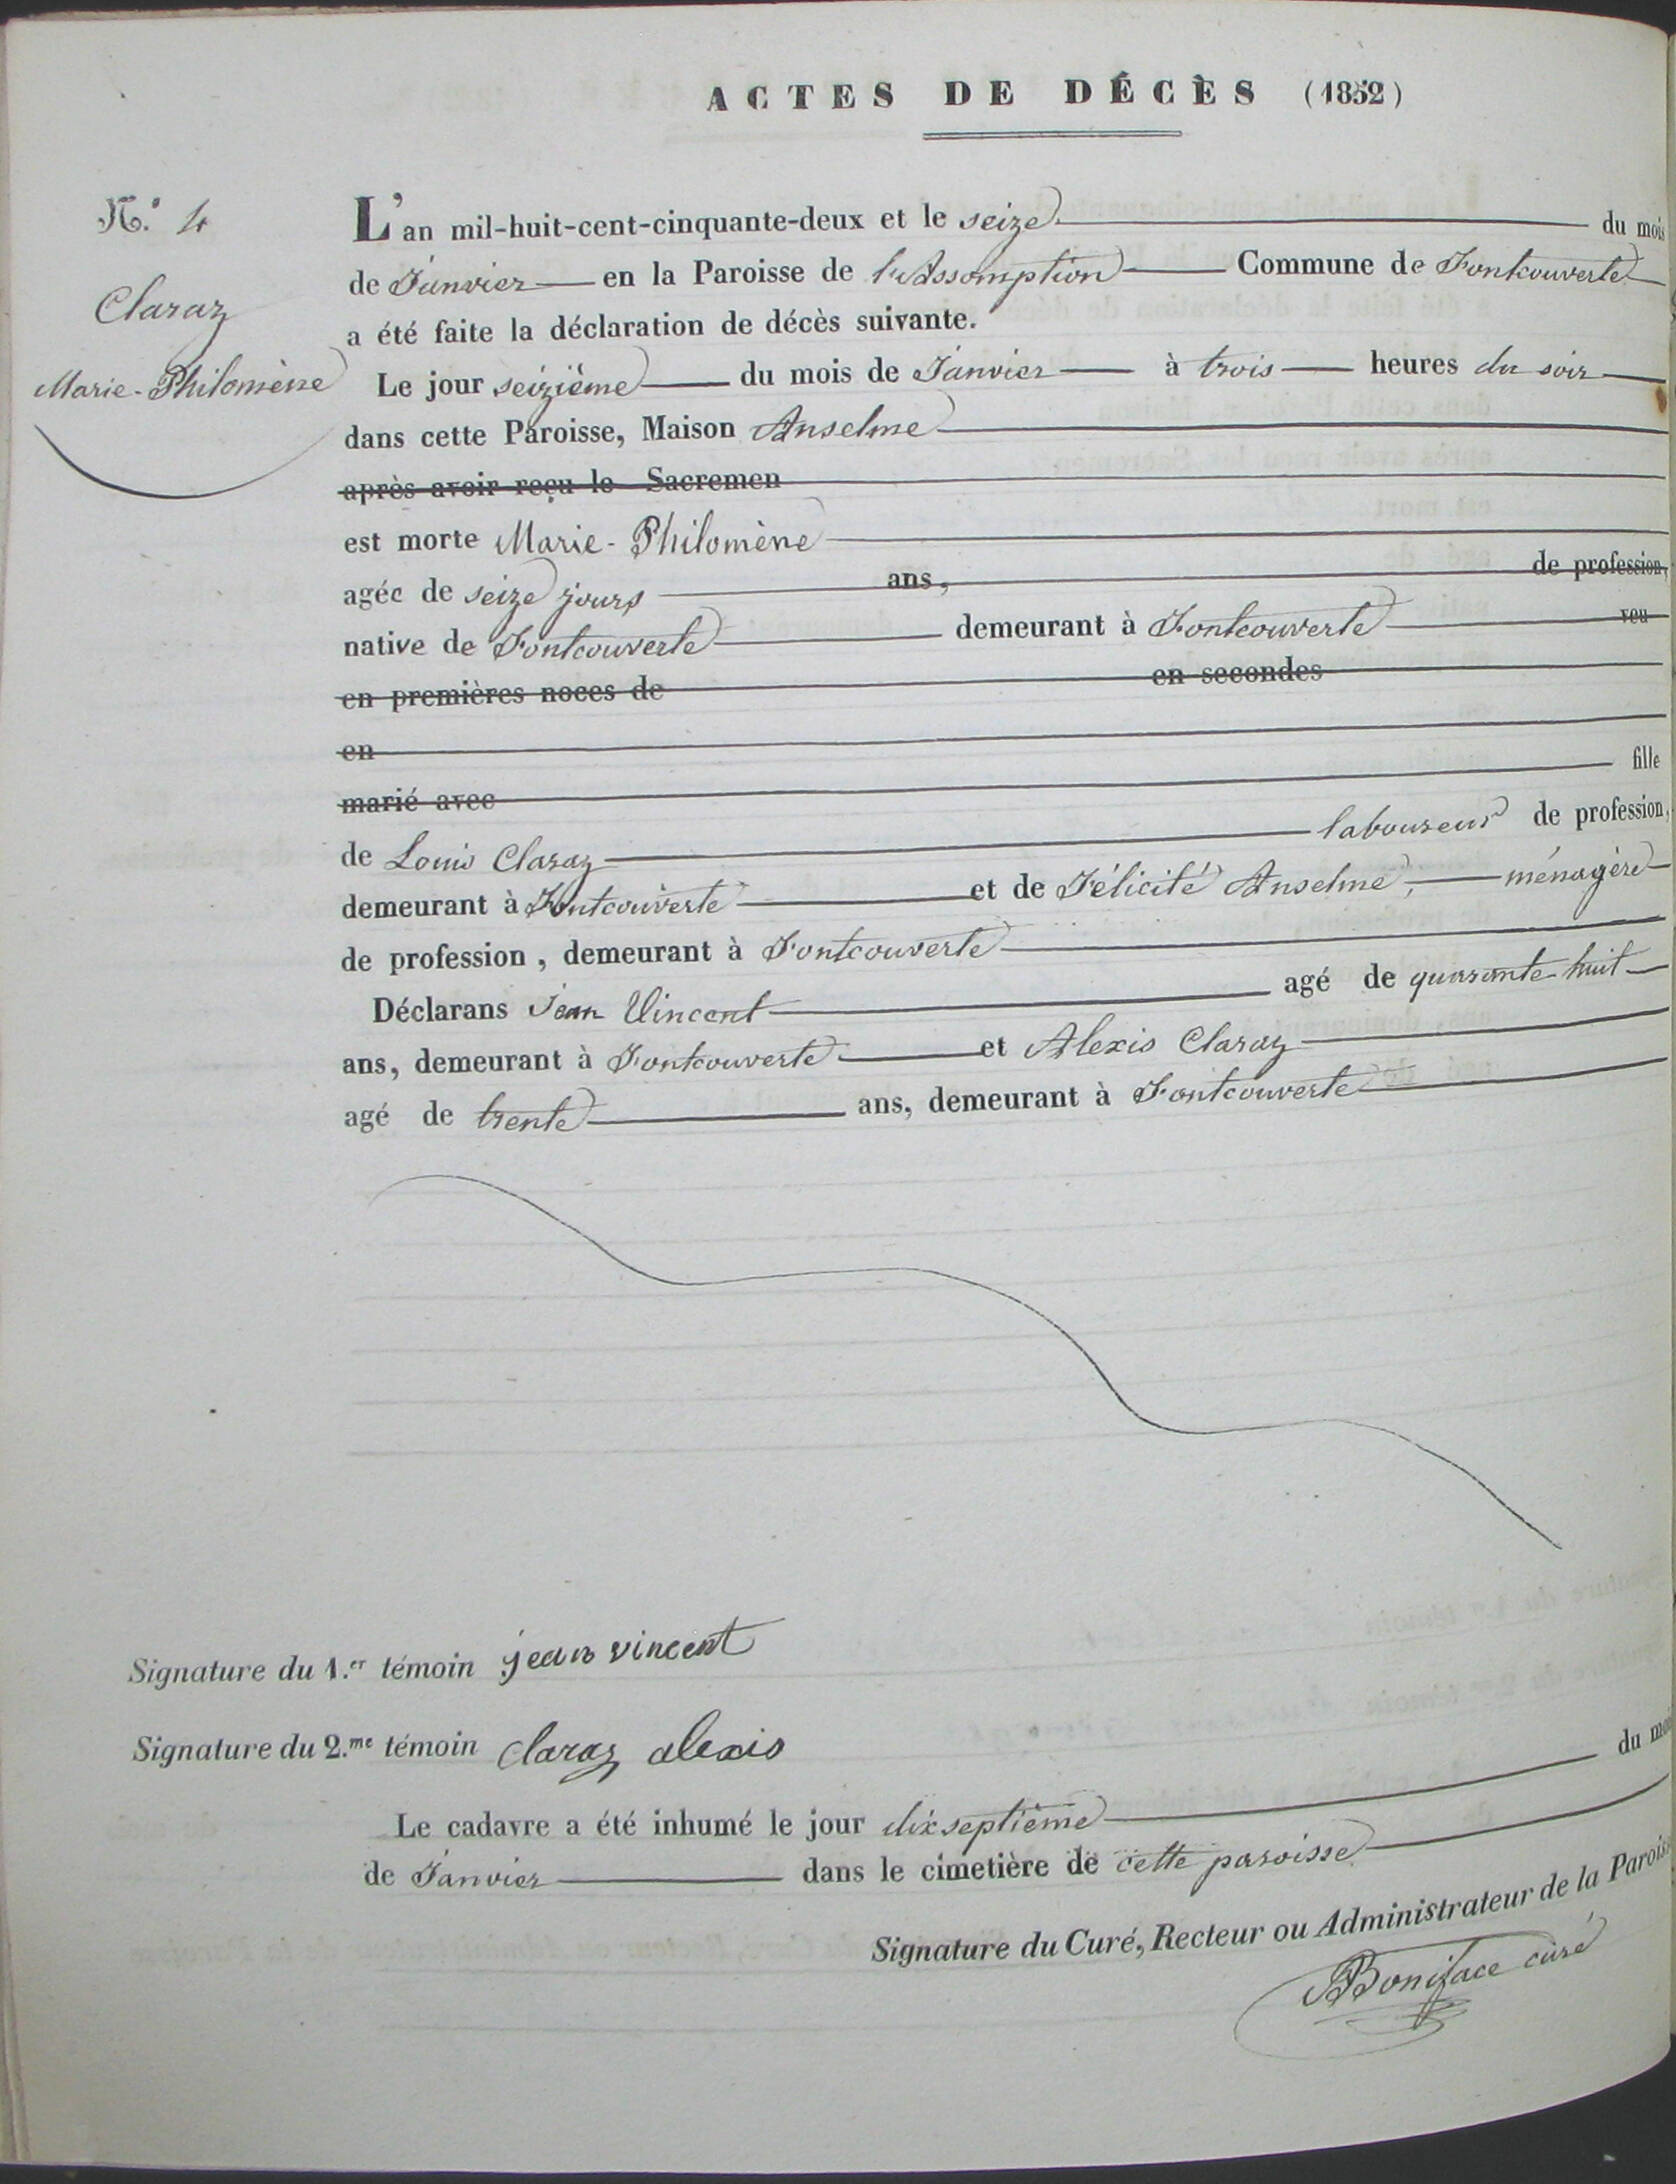 ACTES DE DÉCÈS (1852)
N.° 4
Claraz
Marie-Philomène
L'an mil-huit-cent-cinquante-deux et le seize du mois
de Janvier en la Paroisse de l'Assomption Commune de Fontcouverte
a été faite la déclaration de décès suivante.
Le jour seizième du mois de Janvier à trois heures du soir
dans cette Paroisse, Maison Anselme
après avoir reçu le Sacremen
est morte Marie-Philomène
agée de seize jours ans, de profession,
native de Fontcouverte demeurant à Fontcouverte veu
en premières noces de en secondes
en
marié avec fille
de Louis Claraz laboureur de profession,
demeurant à Fontcouverte et de Félicité Anselme, ménagère
de profession, demeurant à Fontcouverte
Déclarans Jean Vincent agé de quarante-huit
ans, demeurant à Fontcouverte et Alexis Claraz
agé de trente ans, demeurant à Fontcouverte
Signature du 1.er témoin jean vincent
Signature du 2.me témoin claraz alexis
Le cadavre a été inhumé le jour dix septième du mois
de Janvier dans le cimetière de cette paroisse
Signature du Curé, Recteur ou Administrateur de la Paroisse
Boniface curé